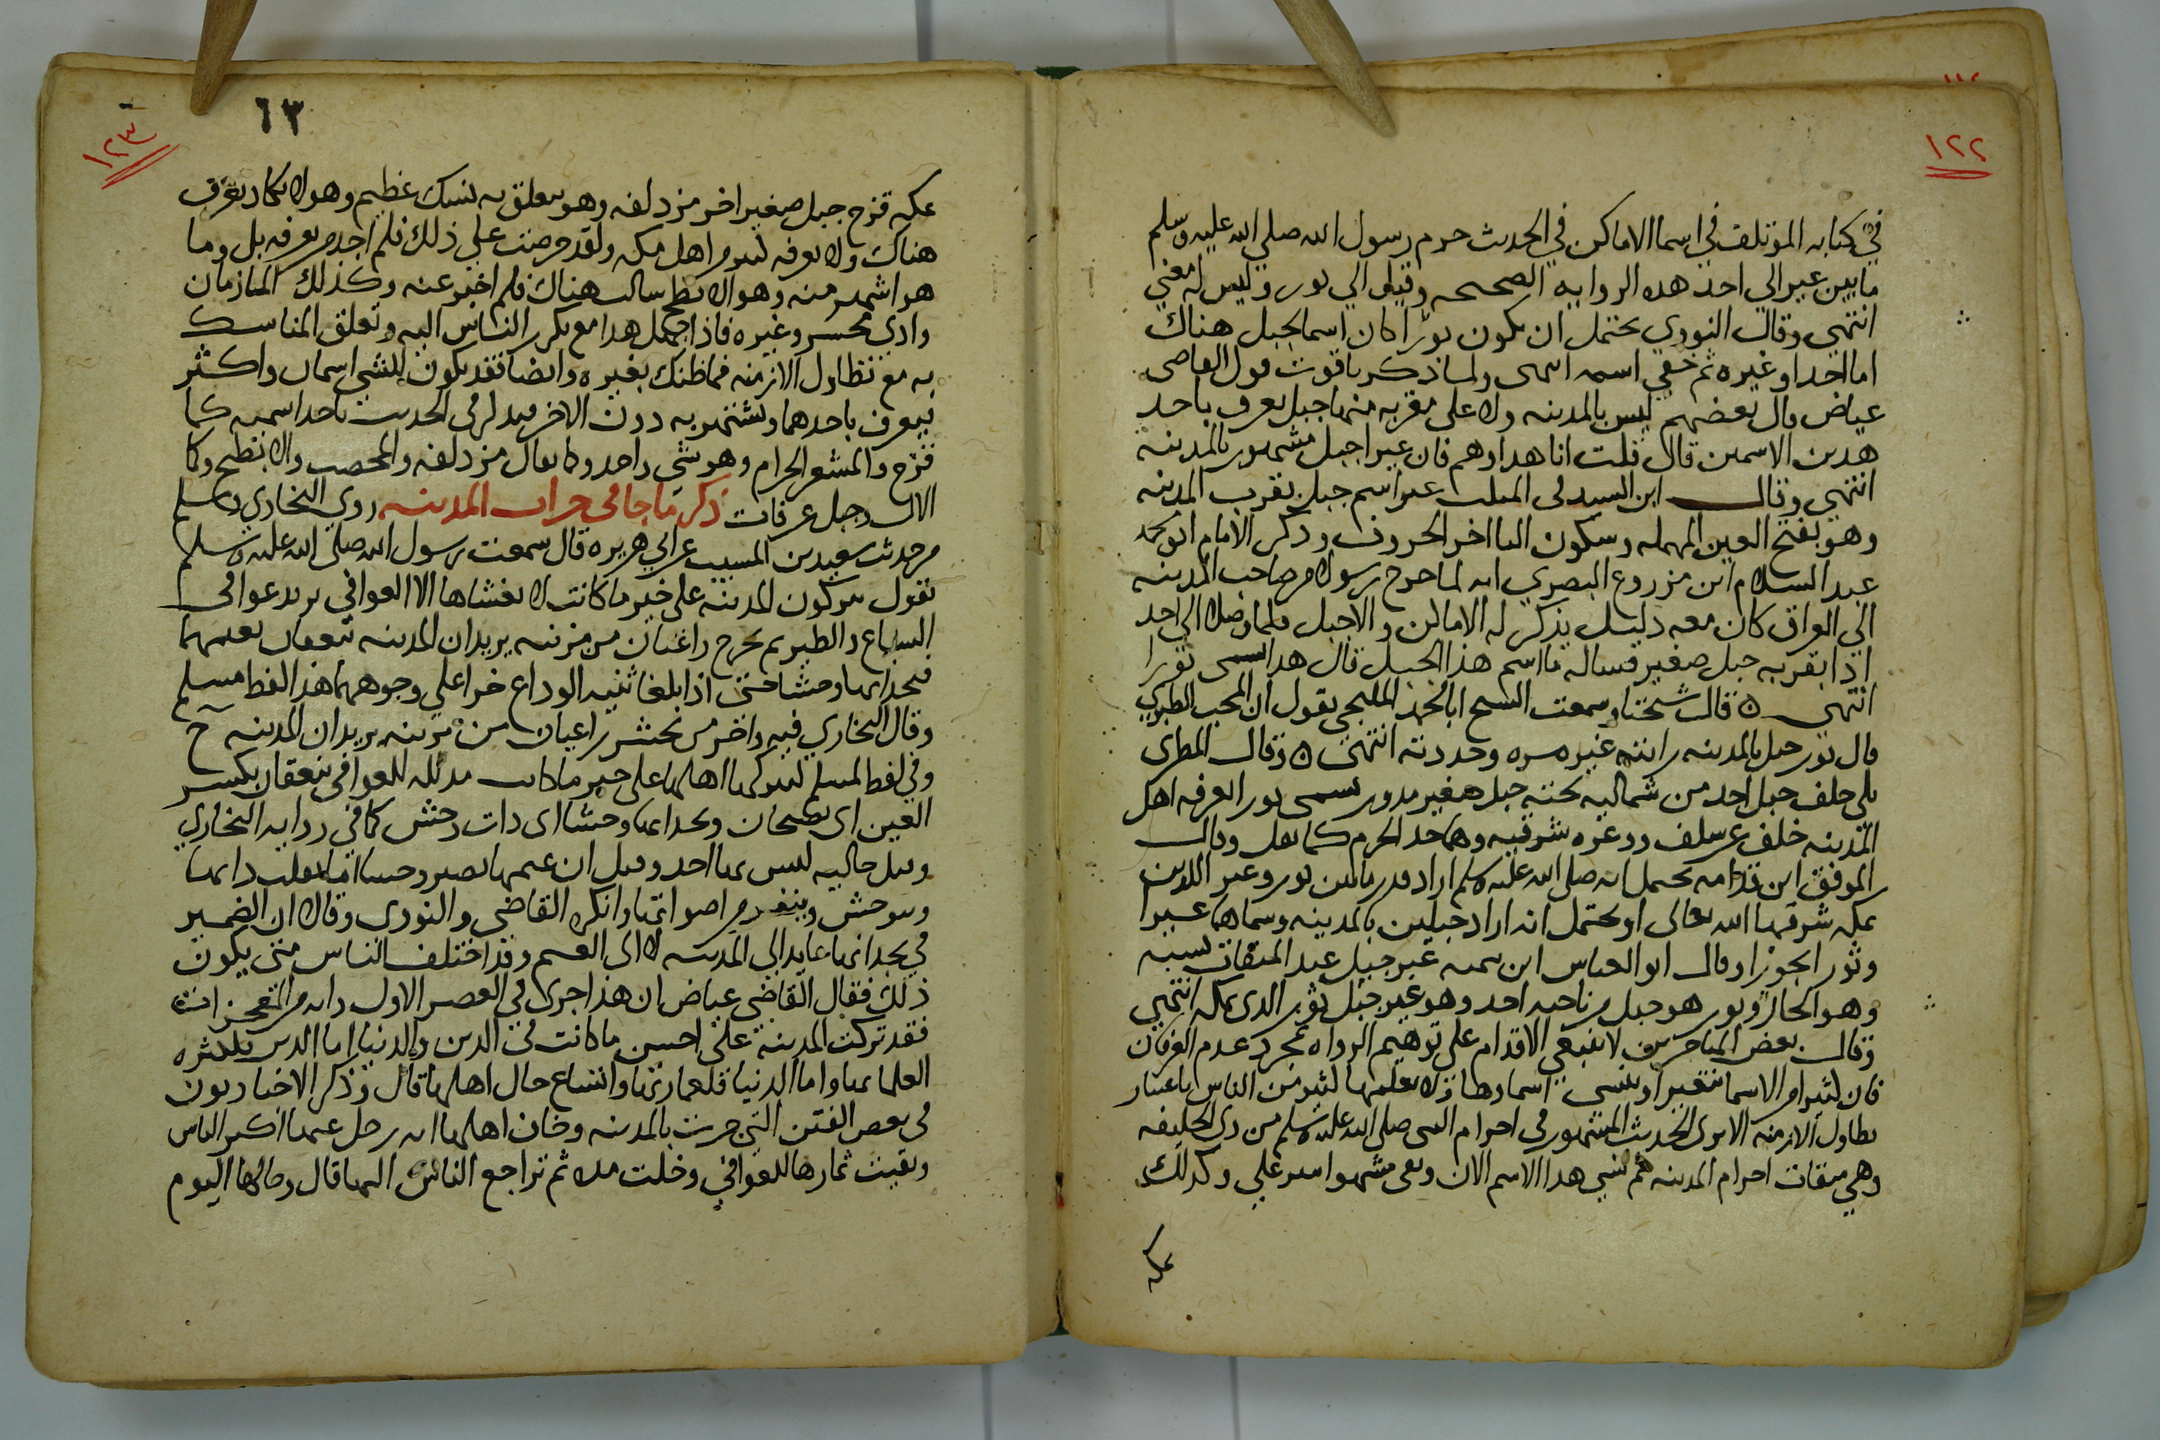 ١٢٢
في كتابه المؤتلف في اسما الاماكن في الحديث حرم رسول الله صلي الله عليه وسلم
ما بين عير الي احد هذه الرواية الصحيحه وقيل الي ثور وليس له معني
انتهي وقال النووي يحتمل ان يكون ثورا كان اسما لجبل هناك
اما احد او غيره ثم خفي اسمه انتهى ولما ذكر ياقوت قول القاضي
عياض قال بعضهم ليس بالمدينه ولا علي مقربه منها جبل يعرف باحد
هذين الاسمين قال قلت انا هذا وهم فان عيرا جبل مشهور بالمدينه
انتهي وقال ابن السيد في المثلث عير اسم جبل بقرب المدينه
وهو بفتح العين المهمله وسكون اليا اخر الحروف وذكر الامام ابو محمد
عبد السلام ابن مزروع البصري انه لما خرج رسولا من صاحب المدينه
الي العراق كان معه دليل يذكر له الاماكن والاجبل فلما وصلا الي احد
اذا بقربه جبل صغير فساله ما اسم هذا الجبل قال هذا يسمى ثورا
انتهى ه قال شيخنا وسمعت الشيخ ابا محمد الخليجي يقول ان المحب الطبري
قال ثور جبل بالمدينه رايته غير مره وحددته انتهى ه وقال المطري
بلي خلف جبل احد من شماليه تحته جبل صغير مدور يسمى ثورا يعرفه اهل
المدينه خلف عن سلف ووعره شرقيه وهما حد الحرم كما نقل وقال
الموفق ابن قدامه يحتمل انه صلي الله عليه وسلم اراد قدر ما بين ثور وعير اللذين
بمكه شرفها الله تعالى او يحتمل انه اراد جبلين بالمدينه وسماهما عيرا
وثورا تجوزا وقال ابو العباس ابن تيميه عير جبل عند الميقات يشبه
وهو الحمار وثور هو جبل من ناحيه احد وهو غير جبل ثور الذي بمكه انتهي
وقال بعض المتاخرين لا ينبغي الاقدام علي توهيم الرواه بمجرد عدم العرفان
فان كثيرا من الاسما تتغير او تنسى اسماوها ولا يعلمها كثير من الناس باعتبار
تطاول الازمنه الا ترى الحديث المشهور في احرام النبي صلي الله عليه وسلم من ذي الحليفه
وهي ميقات احرام المدينه ثم نسي هذا الاسم الان وبقى مشهوا ببير علي وكذلك
بمكه
١٢٣
٦٣
بمكه قزح جبل صغير اخر مزدلفه وهو يتعلق به نسك عظيم وهو لا يكاد يعرف
هناك ولا يعرفه كثير من اهل مكه ولقد حرصت علي ذلك فلم اجد من يعرفه بل وما
هو اشهر منه وهو الابطح سالت هناك فلم اخبر عنه وكذلك المازمان
وادي محسر وغيره فاذا جهل هذا مع تكرر الناس اليه وتعلق المناسك
به مع تطاول الازمنه فما ظنك بغيره وايضا فقد يكون للشي اسمان واكثر
فيعرف باحدهما ويشتهر به دون الاخر فيذكر في الحديث باحد اسميه كما
قزح والمشعر الحرام وهو شي واحد وكما يقال مزدلفه والمحصب والابطح وكما
الال وجبل عرفات ذكر ما جا في خراب المدينه روي البخاري ومسلم
من حديث سعيد بن المسيب عن ابي هريره قال سمعت رسول الله صلي الله عليه وسلم
يقول يتركون المدينه علي خير ما كانت لا يغشاها الا العوافي يريد عوافي
السباع والطير ثم يخرج راعيان من مزينه يريدان المدينه ينعقان بغنمهما
فيجدانها وحشا حتى اذا بلغا ثنيه الوداع خرا علي وجوههما هذا لفظ مسلم
وقال البخاري فيه واخر من يحشر راعيان من مزينه يريدان المدينه
وفي لفظ لمسلم ليتركنها اهلها علي خير ما كانت مذلله للعوافي ينعقان بكسر
العين اي يصيحان ويجدانها وحشا اي ذات وحش كما في روايه البخاري
وقيل خاليه ليس بها احد وقيل ان غنمهما تصير وحشا اما بقلب ذاتها
وتتوحش وينفر من اصواتها وانكره القاضي والنووي وقال ان الضمير
في يجدانها عايد الي المدينه لا الي الغنم وقد اختلف الناس متي يكون
ذلك فقال القاضي عياض ان هذا جرى في العصر الاول وانه من المعجزات
فقد تركت المدينه على احسن ما كانت في الدين والدنيا اما الدين فلكثره
العلما بها واما الدنيا فلعمارتها واتساع حال اهلها قال وذكر الاخباريون
في بعض الفتن التي جرت بالمدينه وخاف اهلها انه رحل عنها اكثر الناس
وبقيت ثمارها للعوافي وخلت مده ثم تراجع الناس اليها قال وحالها اليوم